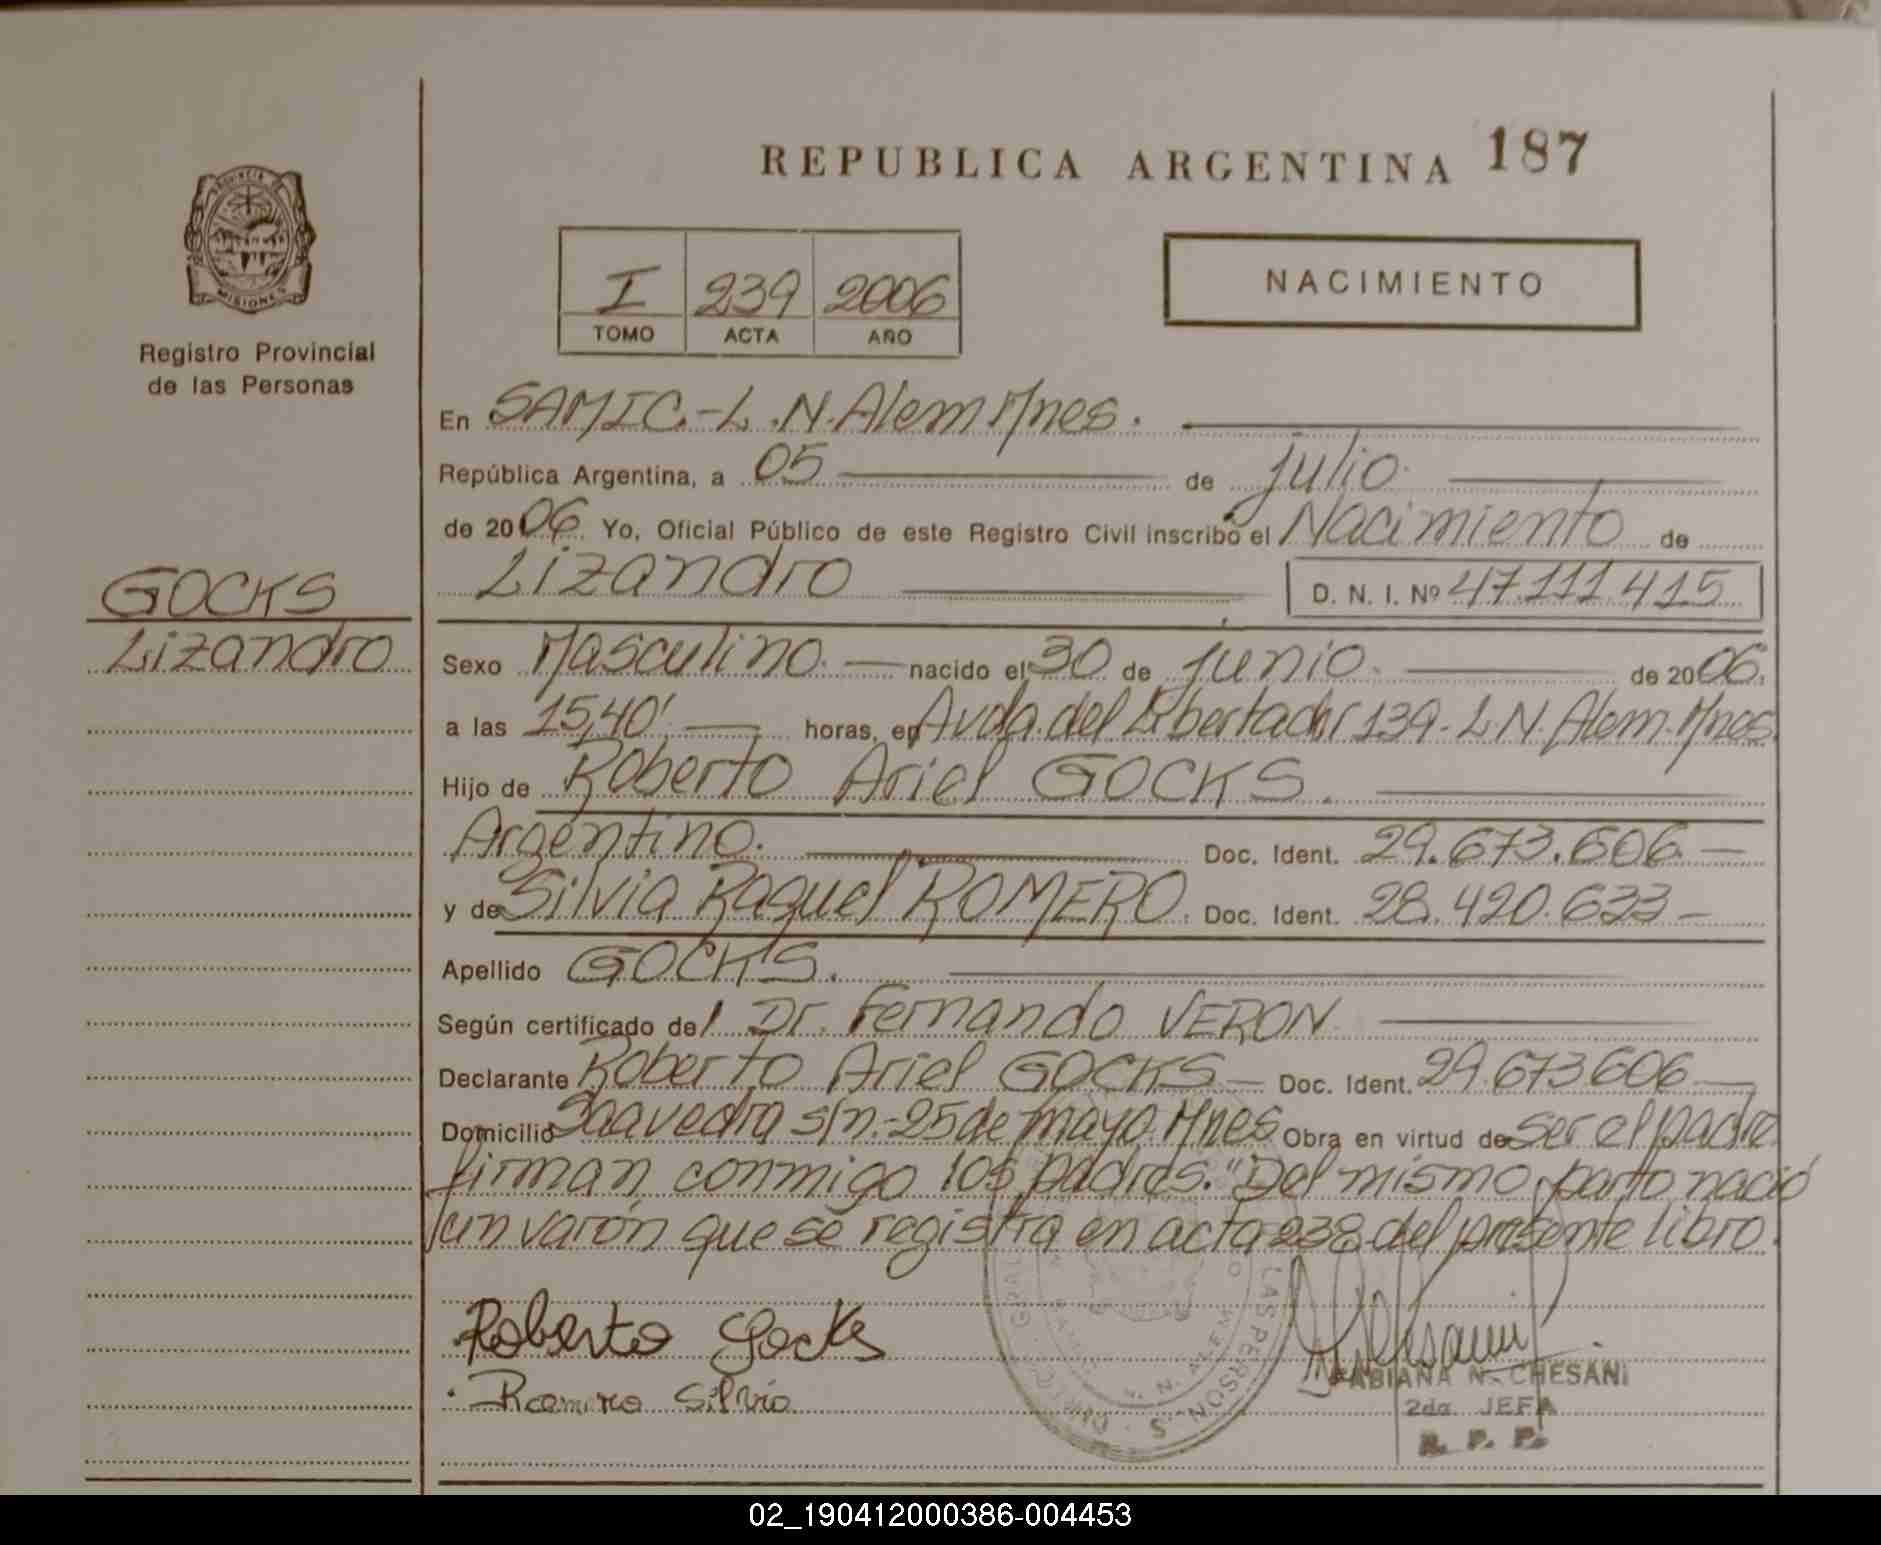 REPUBLICA ARGENTINA 187
PROVINCIA DE
MISIONES
Registro Provincial
de las Personas
I 239 2006
TOMO ACTA AÑO
NACIMIENTO
En SAMIC.-L.N.Alem Mnes.
República Argentina, a 05 de julio.
de 2006. Yo, Oficial Público de este Registro Civil inscribo el Nacimiento de
Lizandro D. N. I. Nº 47.111.415
GOCKS
Lizandro
Sexo Masculino. nacido el 30 de junio. de 2006.
a las 15,40' horas, en Avda.del Libertador 139-L.N.Alem.Mnes.
Hijo de Roberto Ariel GOCKS.
Argentino. Doc. Ident. 29.673.606.-
y de Silvia Raquel ROMERO. Doc. Ident. 28.420.633-
Apellido GOCKS.
Según certificado del Dr. Fernando VERON
Declarante Roberto Ariel GOCKS- Doc. Ident. 29.673606-
Domicilio Saavedra s/n.-25 de mayo.Mnes Obra en virtud de ser el padre
firman conmigo los padres. "Del mismo parto nació
un varón que se registra en acta 238 del presente libro.
Roberto Gocks
Romero Silvia
LAS PERSONAS
FABIANA N. CHESANI
2da. JEFA
R. P. P.
02_190412000386-004453